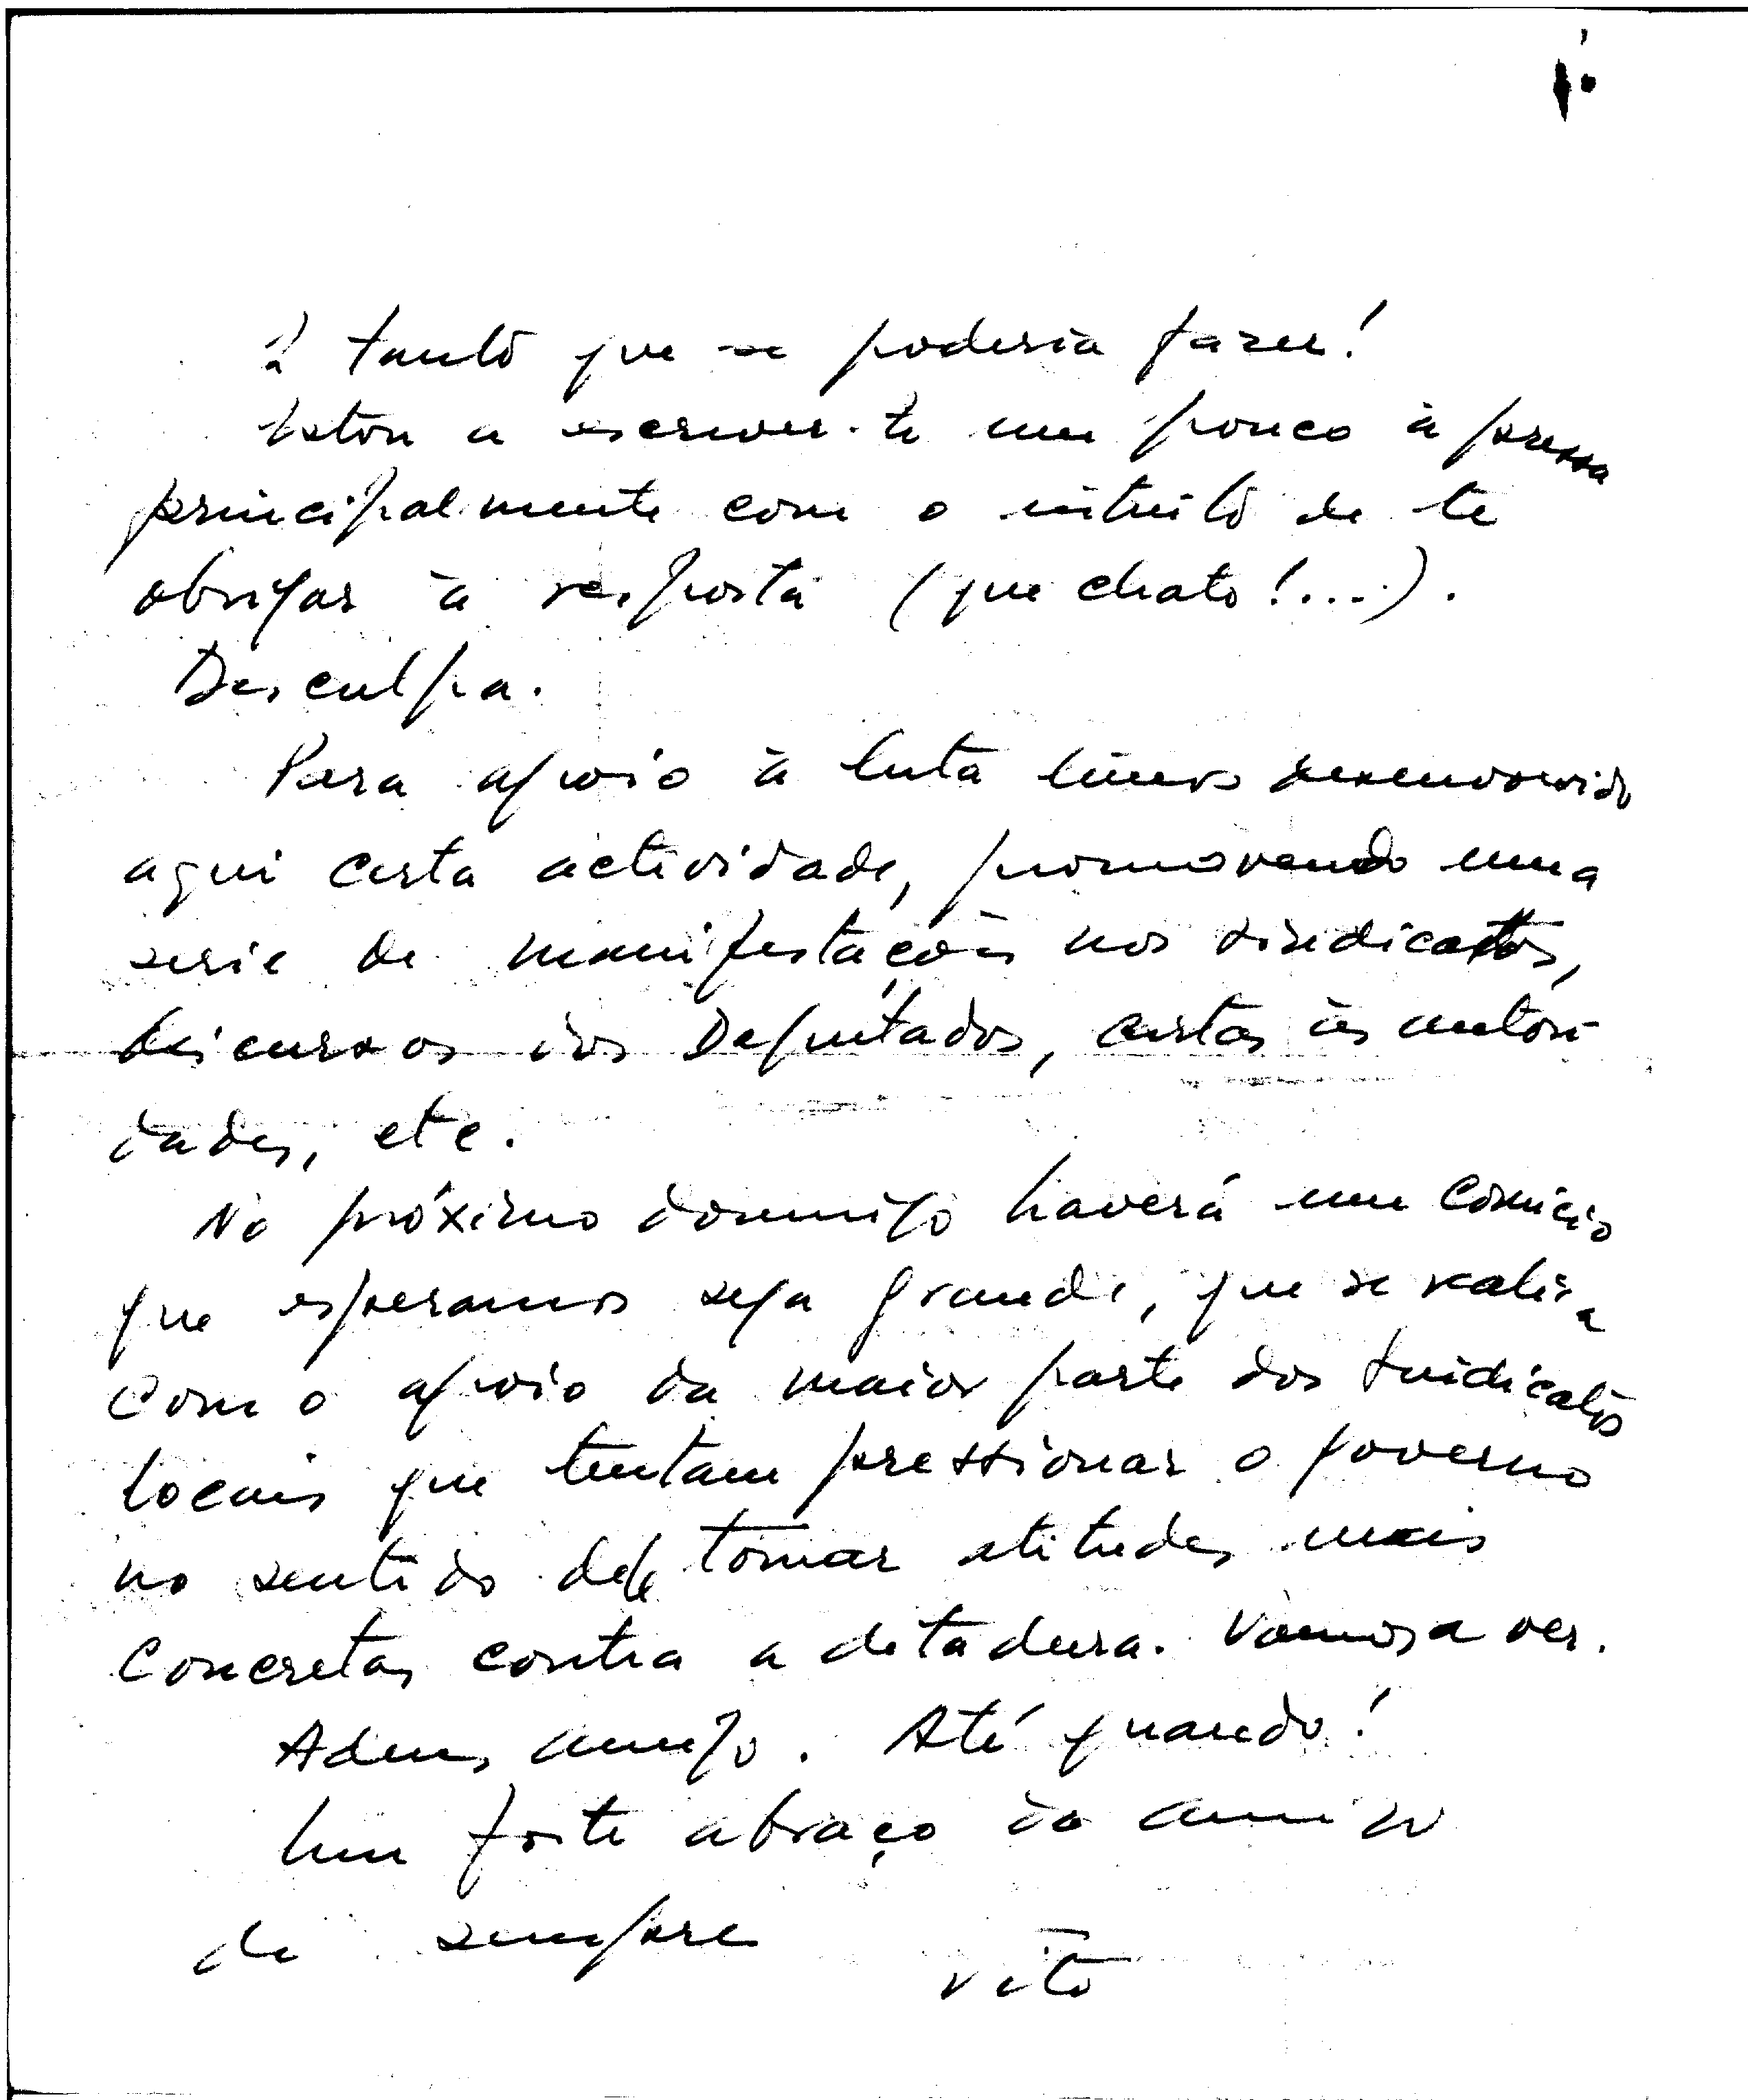 E tanto que se poderia fazer!
Estou a escrever-te um pouco à pressa
principalmente com o intuito de te
obrigar à resposta (que chato!...).
Desculpa.
Para apoio à luta temos desenvolvido
aqui certa actividade, promovendo uma
serie de manifestações nos sindicatos,
discursos dos Deputados, cartas às autori-
dades, etc.
No próximo domingo haverá um comicio
que esperamos seja grande, que se realiza
com o apoio da maior parte dos sindicatos
locais que tentam pressionar o governo
no sentido dele tomar atitudes mais
concretas contra a ditadura. Vamos a ver.
Adeus, amigo. Até quando!
Um forte abraço do amigo
de sempre
Vito